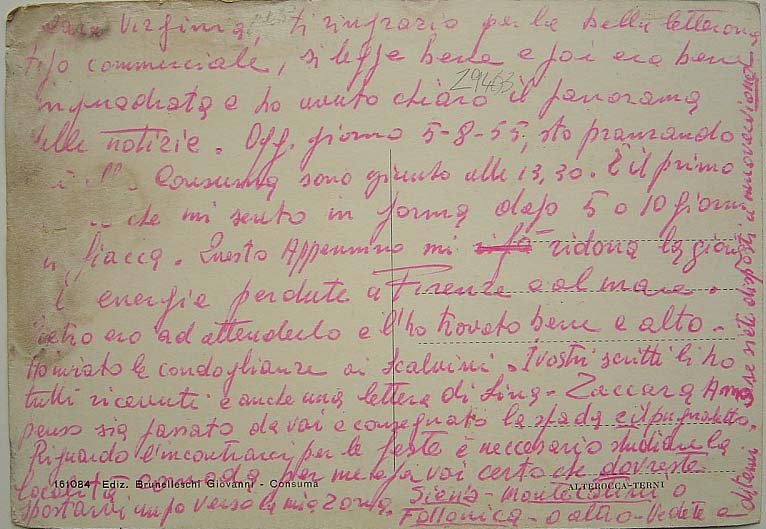 Cara Virginia, ti ringrazio per la bella letterona
tipo commerciale, si legge bene e poi era bene
inquadrata e ho avuto chiaro il panorama
29463
delle notizie. Ogg. giorno 5-8-55, sto pranzando
Consuma sono giunto alle 13,30. È il primo
che mi sento in forma dopo 5 o 10 giorni
fiacca. Questo Appennino mi ridona la gioia
energie perdute a Firenze e al mare.
Pietro ero ad attenderlo e l'ho trovato bene e alto-
le condoglianze ai Scalvini. I vostri scritti li ho
tutti ricevuti e anche una lettera di Lina- Zaccara
penso sia passato da voi e consegnato la spada e il pugnaletto.
Riguardo l'incontrarci per le feste è neccesario studiare la
località comoda per me e voi certo che dovreste
161084 Ediz. Brunelleschi Giovanni - Consuma
ALTEROCCA-TERNI
spostarvi un po verso la mia zona. Siena- Montecatini o
Follonica- o altro- Vedete a
ditemi se siete disposti a muovervi